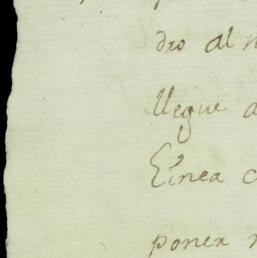 dro al
llegue a
Linea
poner